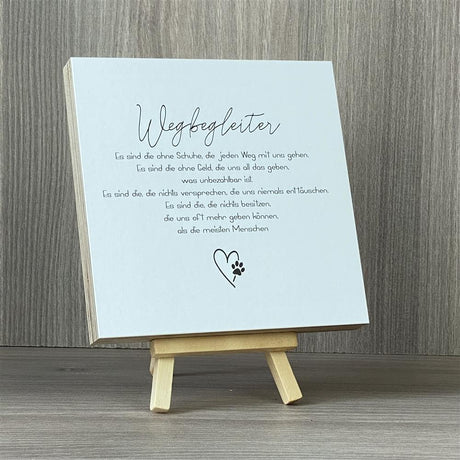 Wegbegleiter
Es sind die ohne Schuhe, die jeden Weg mit uns gehen,
Es sind die ohne Geld, die uns all das geben,
was unbezahlbar ist,
Es sind die, die nichts versprechen, die uns niemals enttäuschen,
Es sind die, die nichts besitzen,
die uns oft mehr geben können,
als die meisten Menschen